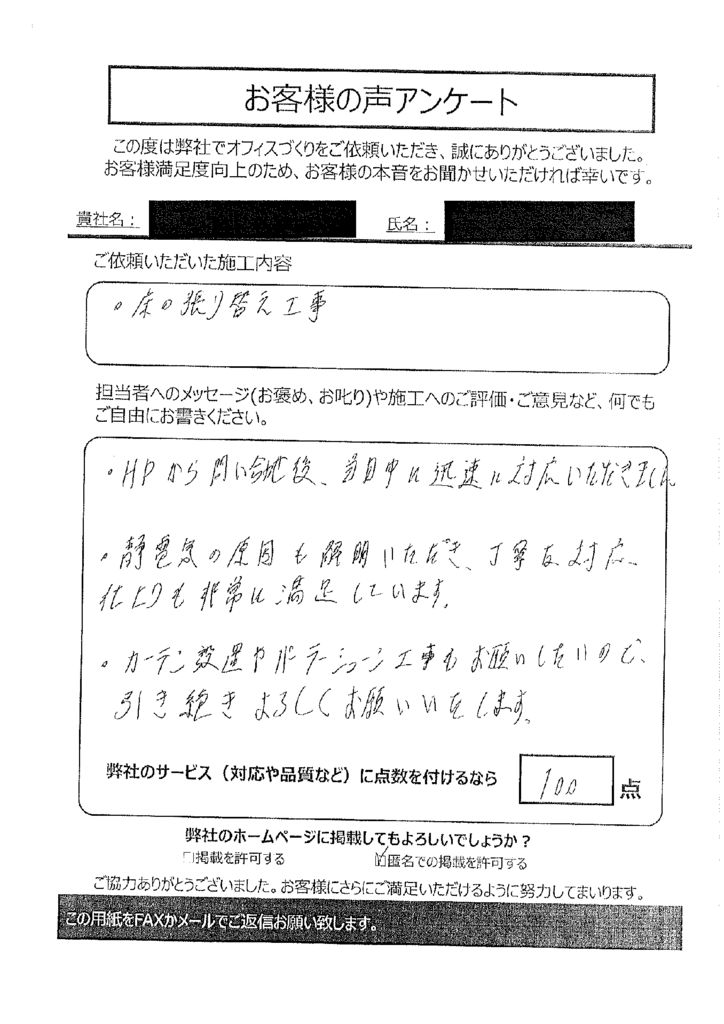 お客様の声アンケート
この度は弊社でオフィスづくりをご依頼いただき、誠にありがとうございました。
お客様満足度向上のため、お客様の本音をお聞かせいただければ幸いです。
貴社名： 氏名：
ご依頼いただいた施工内容
・床の張り替え工事
担当者へのメッセージ(お褒め、お叱り)や施工へのご評価・ご意見など、何でも
ご自由にお書きください。
・HPから問い合わせ後、当日中に迅速に対応いただきました
・静電気の原因も解明いただき、丁寧な対応、
仕上りも非常に満足しています。
・カーテン設置やパーテーション工事もお願いしたいので、
引き続きよろしくお願いいたします。
弊社のサービス（対応や品質など）に点数を付けるなら 100 点
弊社のホームページに掲載してもよろしいでしょうか？
□掲載を許可する ☑匿名での掲載を許可する
ご協力ありがとうございました。お客様にさらにご満足いただけるように努力してまいります。
この用紙をFAXかメールでご返信お願い致します。